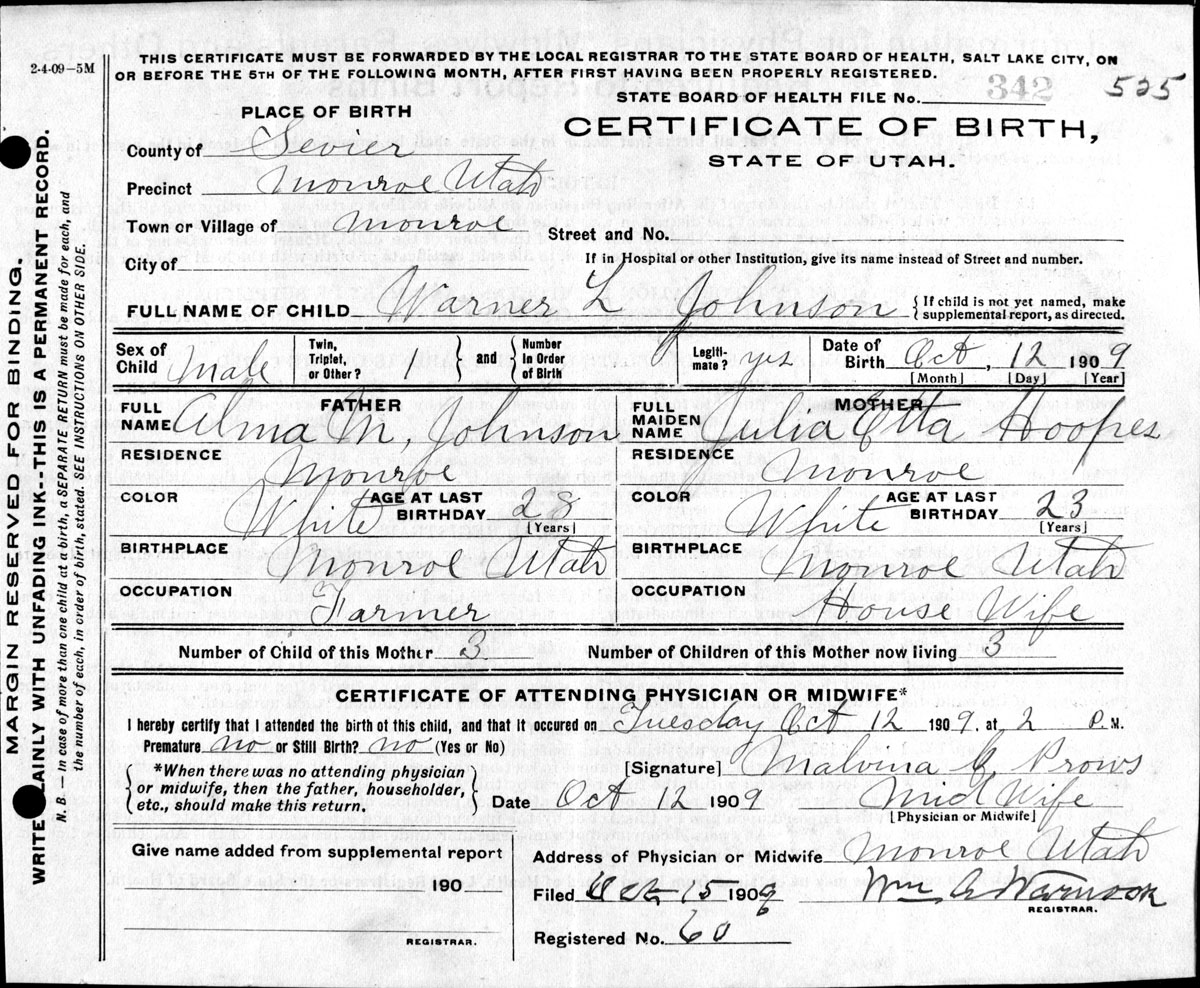 2-4-09-5M
THIS CERTIFICATE MUST BE FORWARDED BY THE LOCAL REGISTRAR TO THE STATE BOARD OF HEALTH, SALT LAKE CITY, ON
OR BEFORE THE 5TH OF THE FOLLOWING MONTH, AFTER FIRST HAVING BEEN PROPERLY REGISTERED.
STATE BOARD OF HEALTH FILE No. 342 525
PLACE OF BIRTH
CERTIFICATE OF BIRTH,
STATE OF UTAH.
County of Sevier
Precinct Monroe Utah
Town or Village of Monroe
Street and No.
City of
If in Hospital or other Institution, give its name instead of Street and number.
FULL NAME OF CHILD Warner L Johnson {If child is not yet named, make
supplemental report, as directed.
Sex of Child Male Twin, Triplet, or Other? } and { Number In Order of Birth Legiti-mate? yes Date of Birth Oct, 12 1909
[Month] [Day] [Year]
FATHER MOTHER
FULL NAME Alma M. Johnson FULL MAIDEN NAME Julia Etta Hoopes
RESIDENCE Monroe RESIDENCE Monroe
COLOR White AGE AT LAST BIRTHDAY 28 [Years] COLOR White AGE AT LAST BIRTHDAY 23 [Years]
BIRTHPLACE Monroe Utah BIRTHPLACE Monroe Utah
OCCUPATION Farmer OCCUPATION House Wife
Number of Child of this Mother 3 Number of Children of this Mother now living 3
CERTIFICATE OF ATTENDING PHYSICIAN OR MIDWIFE*
I hereby certify that I attended the birth of this child, and that it occured on Tuesday Oct 12 1909, at 2 P.M.
Premature no or Still Birth? no (Yes or No)
{*When there was no attending physician
or midwife, then the father, householder,
etc., should make this return.}
[Signature] Malvina C. Prows
Date Oct 12 1909 Mid Wife
[Physician or Midwife]
Give name added from supplemental report
190
REGISTRAR.
Address of Physician or Midwife Monroe Utah
Filed Oct 15 1909 Wm G Warnock
REGISTRAR.
Registered No. 60
MARGIN RESERVED FOR BINDING.
WRITE LAINLY WITH UNFADING INK--THIS IS A PERMANENT RECORD.
N. B.—In case of more than one child at a birth, a SEPARATE RETURN must be made for each, and
the number of each, in order of birth, stated. SEE INSTRUCTIONS ON OTHER SIDE.